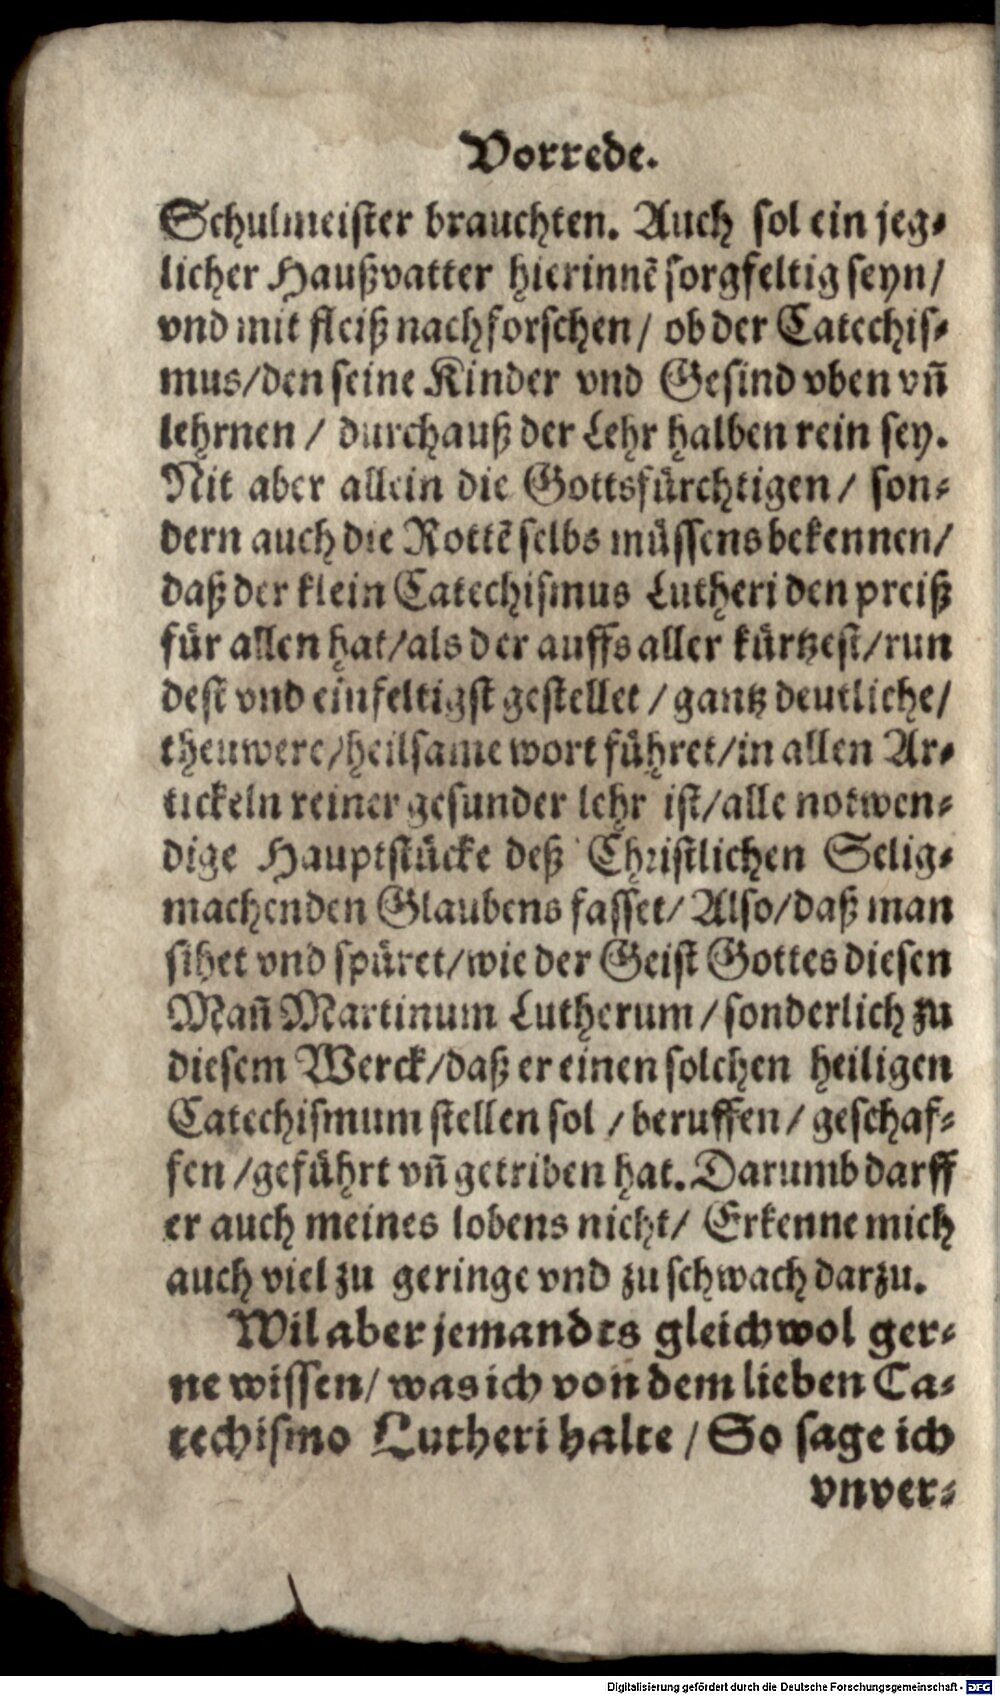 Vorrede.
Schulmeister brauchten. Auch sol ein jeg-
licher Haußvatter hierinnẽ sorgfeltig seyn/
vnd mit fleiß nachforschen/ ob der Catechis-
mus/den seine Kinder vnd Gesind vben vñ
lehrnen / durchauß der Lehr halben rein sey.
Nit aber allein die Gottsfürchtigen/ son-
dern auch die Rottẽ selbs müssens bekennen/
daß der klein Catechismus Lutheri den preiß
für allen hat/als der auffs aller kürtzest/run
dest vnd einfeltigst gestellet / gantz deutliche/
theuwere/heilsame wort führet/in allen Ar-
tickeln reiner gesunder lehr ist/alle notwen-
dige Hauptstücke deß Christlichen Selig-
machenden Glaubens fasset/ Also/daß man
sihet vnd spüret/wie der Geist Gottes diesen
Mañ Martinum Lutherum / sonderlich zu
diesem Werck/daß er einen solchen heiligen
Catechismum stellen sol / beruffen/ geschaf-
fen /geführt vñ getriben hat. Darumb darff
er auch meines lobens nicht/ Erkenne mich
auch viel zu geringe vnd zu schwach darzu.
Wil aber jemandts gleichwol ger-
ne wissen/ was ich von dem lieben Ca-
techismo Lutheri halte / So sage ich
vnver-
Digitalisierung gefördert durch die Deutsche Forschungsgemeinschaft - DFG